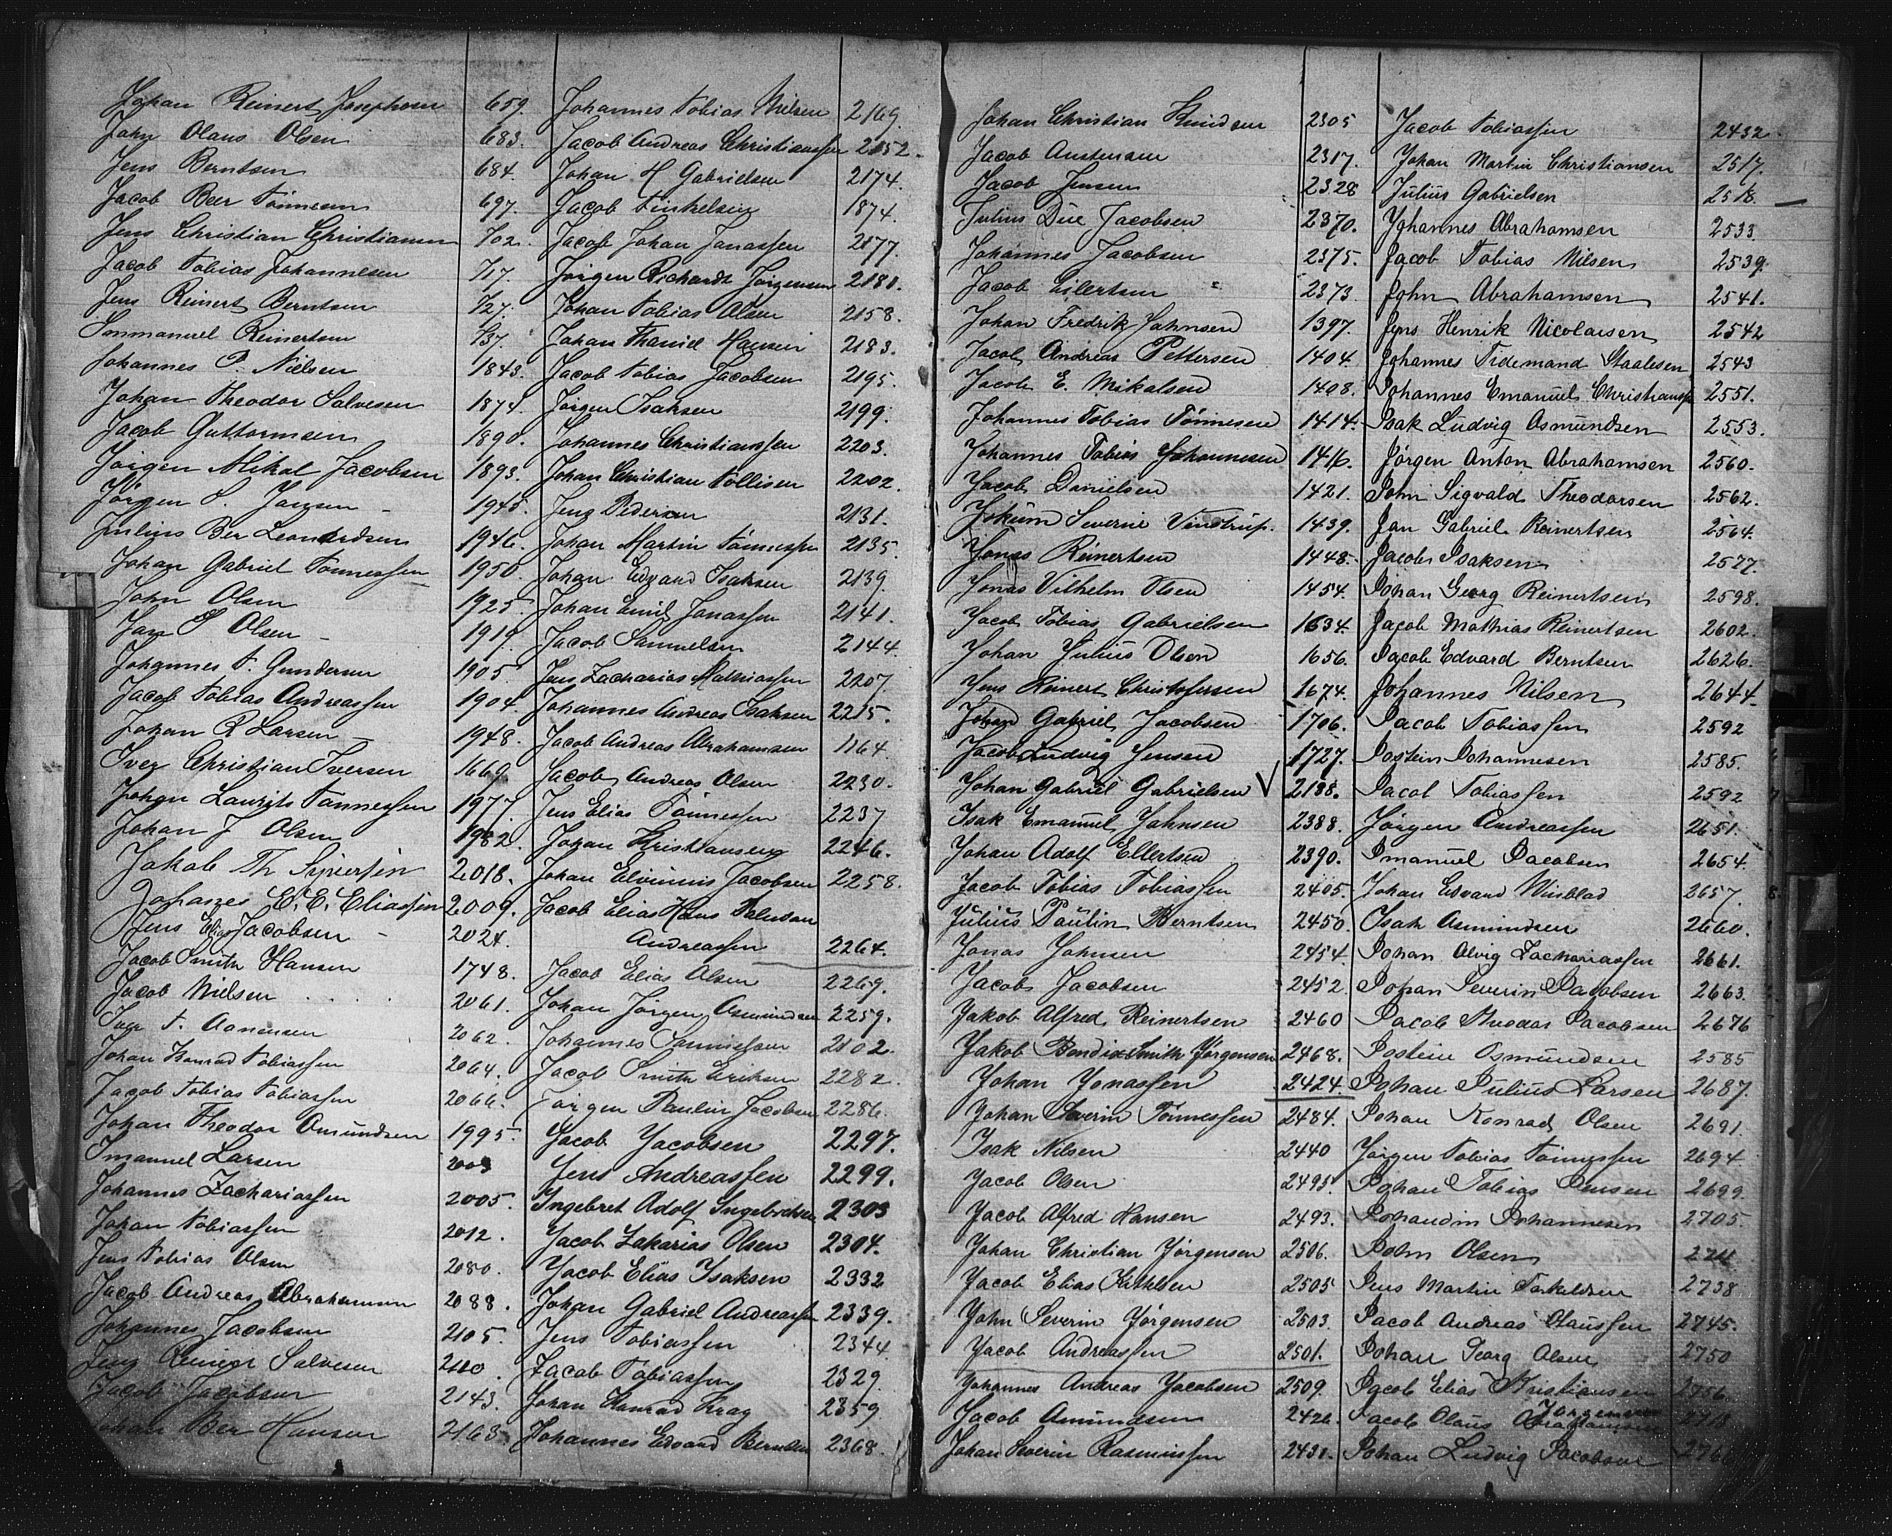 Johan Reinert Josephsen 659.
John Olaus Olsen 683.
Jens Berntsen 684.
Jacob Beer Tønnesen 697.
Jens Christian Christiansen 702.
Jacob Tobias Johannesen 717.
Jens Reinert Berntsen 727.
Immanuel Reinertsen 737.
Johannes P. Nielsen 1843.
Johan Theodor Salvesen 1874.
Jacob Guttormsen 1890.
Jørgen Mikal Jacobsen 1893.
Jørgen S. Jørgsen 1943.
Julius Ber Leonardsen 1946.
Johan Gabriel Tønnessen 1950.
John Olsen 1925.
Jan S Olsen 1919.
Johannes T. Gundersen 1905.
Jacob Tobias Andreassen 1904.
Johan R Larsen 1948.
Iver Christian Iversen 1669.
Johan Lauritz Tønnessen 1977.
Johan J Olsen 1982.
Jakob Th Syvertsen 2018.
Johannes E. E. Eliassen 2009.
Jens Elias Jacobsen 2024.
Jacob Smith Hansen 1748.
Jacob Nielsen 2061.
T. Aanensen 2062.
Johan Konrad Tobiassen 2064.
Jacob Tobias Tobiassen 2066.
Johan Theodor Omundsen 1995.
Imanuel Larsen 2003
Johannes Zachariassen 2005.
Johan Tobiassen 2012.
Jens Tobias Olsen 2080.
Jacob Andreas Abrahamsen 2088.
Johannes Jacobsen 2105.
Jens Reinert Salvesen 2110.
Jacob Jacobsen 2143.
Johan Ber Hansen 2163.
Johannes Tobias Nielsen 2169.
Jacob Andreas Christiansen 2152.
Johan H Gabrielsen 2174.
Jacob Finkelsen 1874.
Jacob Johan Jonassen 2177.
Jørgen Richardt Jørgensen 2181.
Johan Tobias Olsen 2158.
Johan Hansen 2183.
Jacob Tobias Jacobsen 2195.
Jørgen Isaksen 2199.
Johannes Christianssen 2203.
Johan Christian Tollisen 2202.
Jens Pedersen 2131.
Johan Martin Tønnessen 2135.
Johan Edvard Isaksen 2139.
Johan Emil Jonassen 2141.
Jacob Samuelsen 2144
Jens Zacharias Mathiassen 2207.
Johannes Andreas Isaksen 2215.
Jacob Andreas Abrahamsen 1164.
Jacob Andreas Olsen 2230.
Jens Elias Tønnessen 2237
Johan Kristiansen 2246.
Johan Elvinius Jacobsen 2258.
Jacob Elias Hans
Andreassen 2264.
Jacob Elias Olsen 2269.
Johan Jørgen Osmundsen 2259.
Johannes Tønnessen 2102.
Jacob Smith Eriksen 2282
Jørgen Paulin Jacobsen 2286.
Jacob Jacobsen 2297.
Jens Andreassen 2299.
Ingebret Adolf Ingebretsen 2303
Jacob Zakarias Olsen 2304.
Jacob Elias Isaksen 2332
Johan Gabriel Andreassen 2339.
Jens Tobiassen 2344
Jacob Tobiassen 2329.
Johan Konrad Krag 2359.
Johannes Edvard Berntsen 2368.
Johan Christian Knudsen 2305
Jacob Austensen 2317.
Jacob Jensen 2328
Julius Due Jacobsen 2370.
Johannes Jacobsen 2375.
Jacob Eilertsen 2373.
Johan Fredrik Johnsen 1397.
Jacob Andreas Pettersen 1404.
Jacob E. Mikalsen 1408.
Johannes Tobias Tønnesen 1414.
Johannes Tobias Johannesen 1416.
Jacob Danielsen 1421.
Jokum Severin Vinstrup. 1439.
Jonas Reinertsen 1448.
Jonas Vilhelm Olsen 1454.
Jacob Tobias Gabrielsen 1634.
Johan Julius Olsen 1656.
Jens Reinert Christofersen 1674.
Johan Gabriel Jacobsen 1706.
Jacob Ludvig Jensen 1727.
Johan Gabriel Gabrielsen V 2188.
Isak Emanuel Johnsen 2388.
Johan Adolf Ellertsen 2390.
Jacob Tobias Tobiassen 2405.
Julius Paulin Berntsen 2450.
Jonas Johnsen 2454
Jacob Jacobsen 2452.
Jakob Alfred Reinertsen 2460
Jakob Bendix Smith Jørgensen 2468.
Johan Jonassen 2424.
Johan Severin Tønnessen 2484.
Isak Nilsen 2440
Jacob Olsen 2495.
Jacob Alfred Hansen 2493.
Johan Christian Jørgensen 2506.
Jacob Elias 2505
John Severin Jørgensen 2503.
Jacob Andreassen 2501.
Johannes Andreas Jacobsen 2509.
Jacob Amundsen 2426.
Johan Severin Rasmussen 2431.
Jacob Tobiassen 2432.
Johan Martin Christiansen 2517.
Julius Gabrielsen 2518.
Johannes Abrahamsen 2533
Jacob Tobias Nilsen 2539.
John Abrahamsen 2541.
Jens Henrik Nicolaisen 2542
Johannes Tidemand Staalesen 2543
Johannes Emanuel Christiansen 2551.
Isak Ludvig Osmundsen 2553.
Jørgen Anton Abrahamsen 2560.
John Sigvald Theodorsen 2562.
Jan Gabriel Reinertsen 2564.
Jacob Isaksen 2577.
Johan Georg Reinertsen 2598.
Jacob Mathias Reinertsen 2602.
Jacob Edvard Berntsen 2626.
Johannes Nilsen 2644
Jacob Tobiassen 2592
Jostein Johannesen 2585.
Jacob Tobiassen 2592
Jørgen Andreassen 2651.
Imanuel Jacobsen 2654.
Johan Edvard Winblad 2657.
Isak Asmundsen 2660.
Johan Alvig Zachariassen 2661.
Johan Severin Jacobsen 2663.
Jacob Theodor Jacobsen 2676
Jostein Osmundsen 2585
Johan Julius Larsen 2687.
Johan Konrad Olsen 2691.
Jørgen Tobias Tønnessen 2694
Johan Tobias Jensen 2699.
Johandin Johannesen 2705.
John Olsen
Jens Martin Torkeldsen 2738
Jacob Andreas Olaussen 2745.
Johan Georg Olsen 2750
Jacob Elias Kristiansen 2756.
Jørgensen
Jacob Olaus Abrahamsen
Johan Ludvig Jacobsen